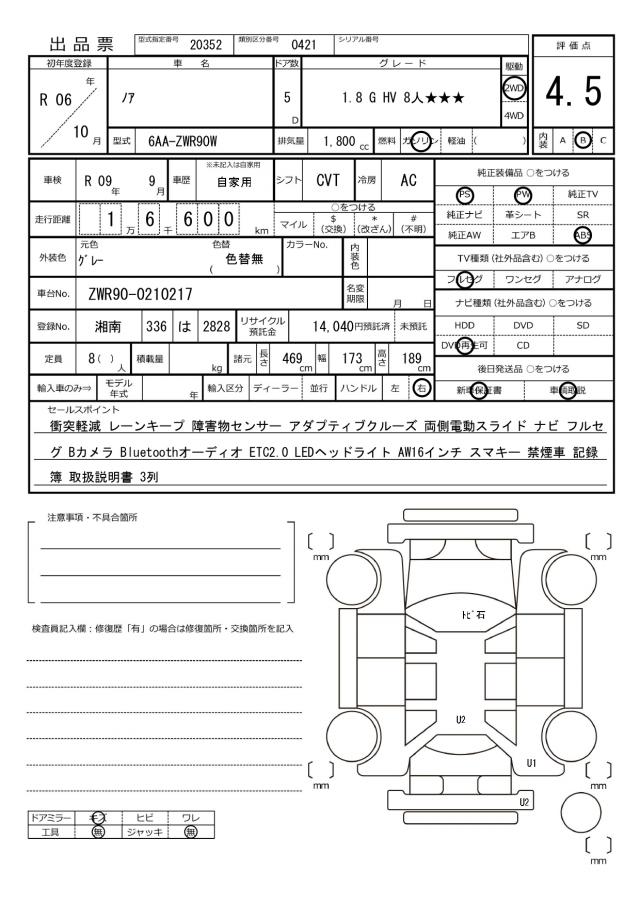 出品票 型式指定番号 20352 類別区分番号 0421 シリアル番号
評価点
4.5
内装 A B C
初年度登録 車名 ドア数 グレード 駆動
R 06 年 ノア 5 D 1.8 G HV 8人★★★ 2WD
4WD
10 月 型式 6AA-ZWR90W 排気量 1,800 cc 燃料 ガソリン 軽油 ( )
車検 R 09 年 9 月 車歴 ※未記入は自家用 自家用 シフト CVT 冷房 AC
走行距離 1 万 6 千 6 0 0 km
○をつける
マイル $ (交換) * (改ざん) # (不明)
外装色 元色 グレー 色替 ( 色替無 ) カラーNo. 内装色
車台No. ZWR90-0210217 名変期限 月 日
登録No. 湘南 336 は 2828 リサイクル預託金 14,040円預託済 未預託
定員 8( )人 積載量 kg 諸元 長さ 469cm 幅 173cm 高さ 189cm
輸入車のみ⇒ モデル年式 年 輸入区分 ディーラー 並行 ハンドル 左 右
純正装備品 ○をつける
PS PW 純正TV
純正ナビ 革シート SR
純正AW エアB ABS
TV種類 (社外品含む) ○をつける
フルセグ ワンセグ アナログ
ナビ種類 (社外品含む) ○をつける
HDD DVD SD
DVD再生可 CD
後日発送品 ○をつける
新車保証書 車輌取説
セールスポイント
衝突軽減 レーンキープ 障害物センサー アダプティブクルーズ 両側電動スライド ナビ フルセ
グ Bカメラ Bluetoothオーディオ ETC2.0 LEDヘッドライト AW16インチ スマキー 禁煙車 記録
簿 取扱説明書 3列
注意事項・不具合箇所
検査員記入欄：修復歴「有」の場合は修復箇所・交換箇所を記入
ドアミラー キズ ヒビ ワレ
工具 無 ジャッキ 無
〔 〕mm
〔 〕mm
トビ石
U2
U1
〔 〕mm
〔 〕mm
U2
〔 〕mm